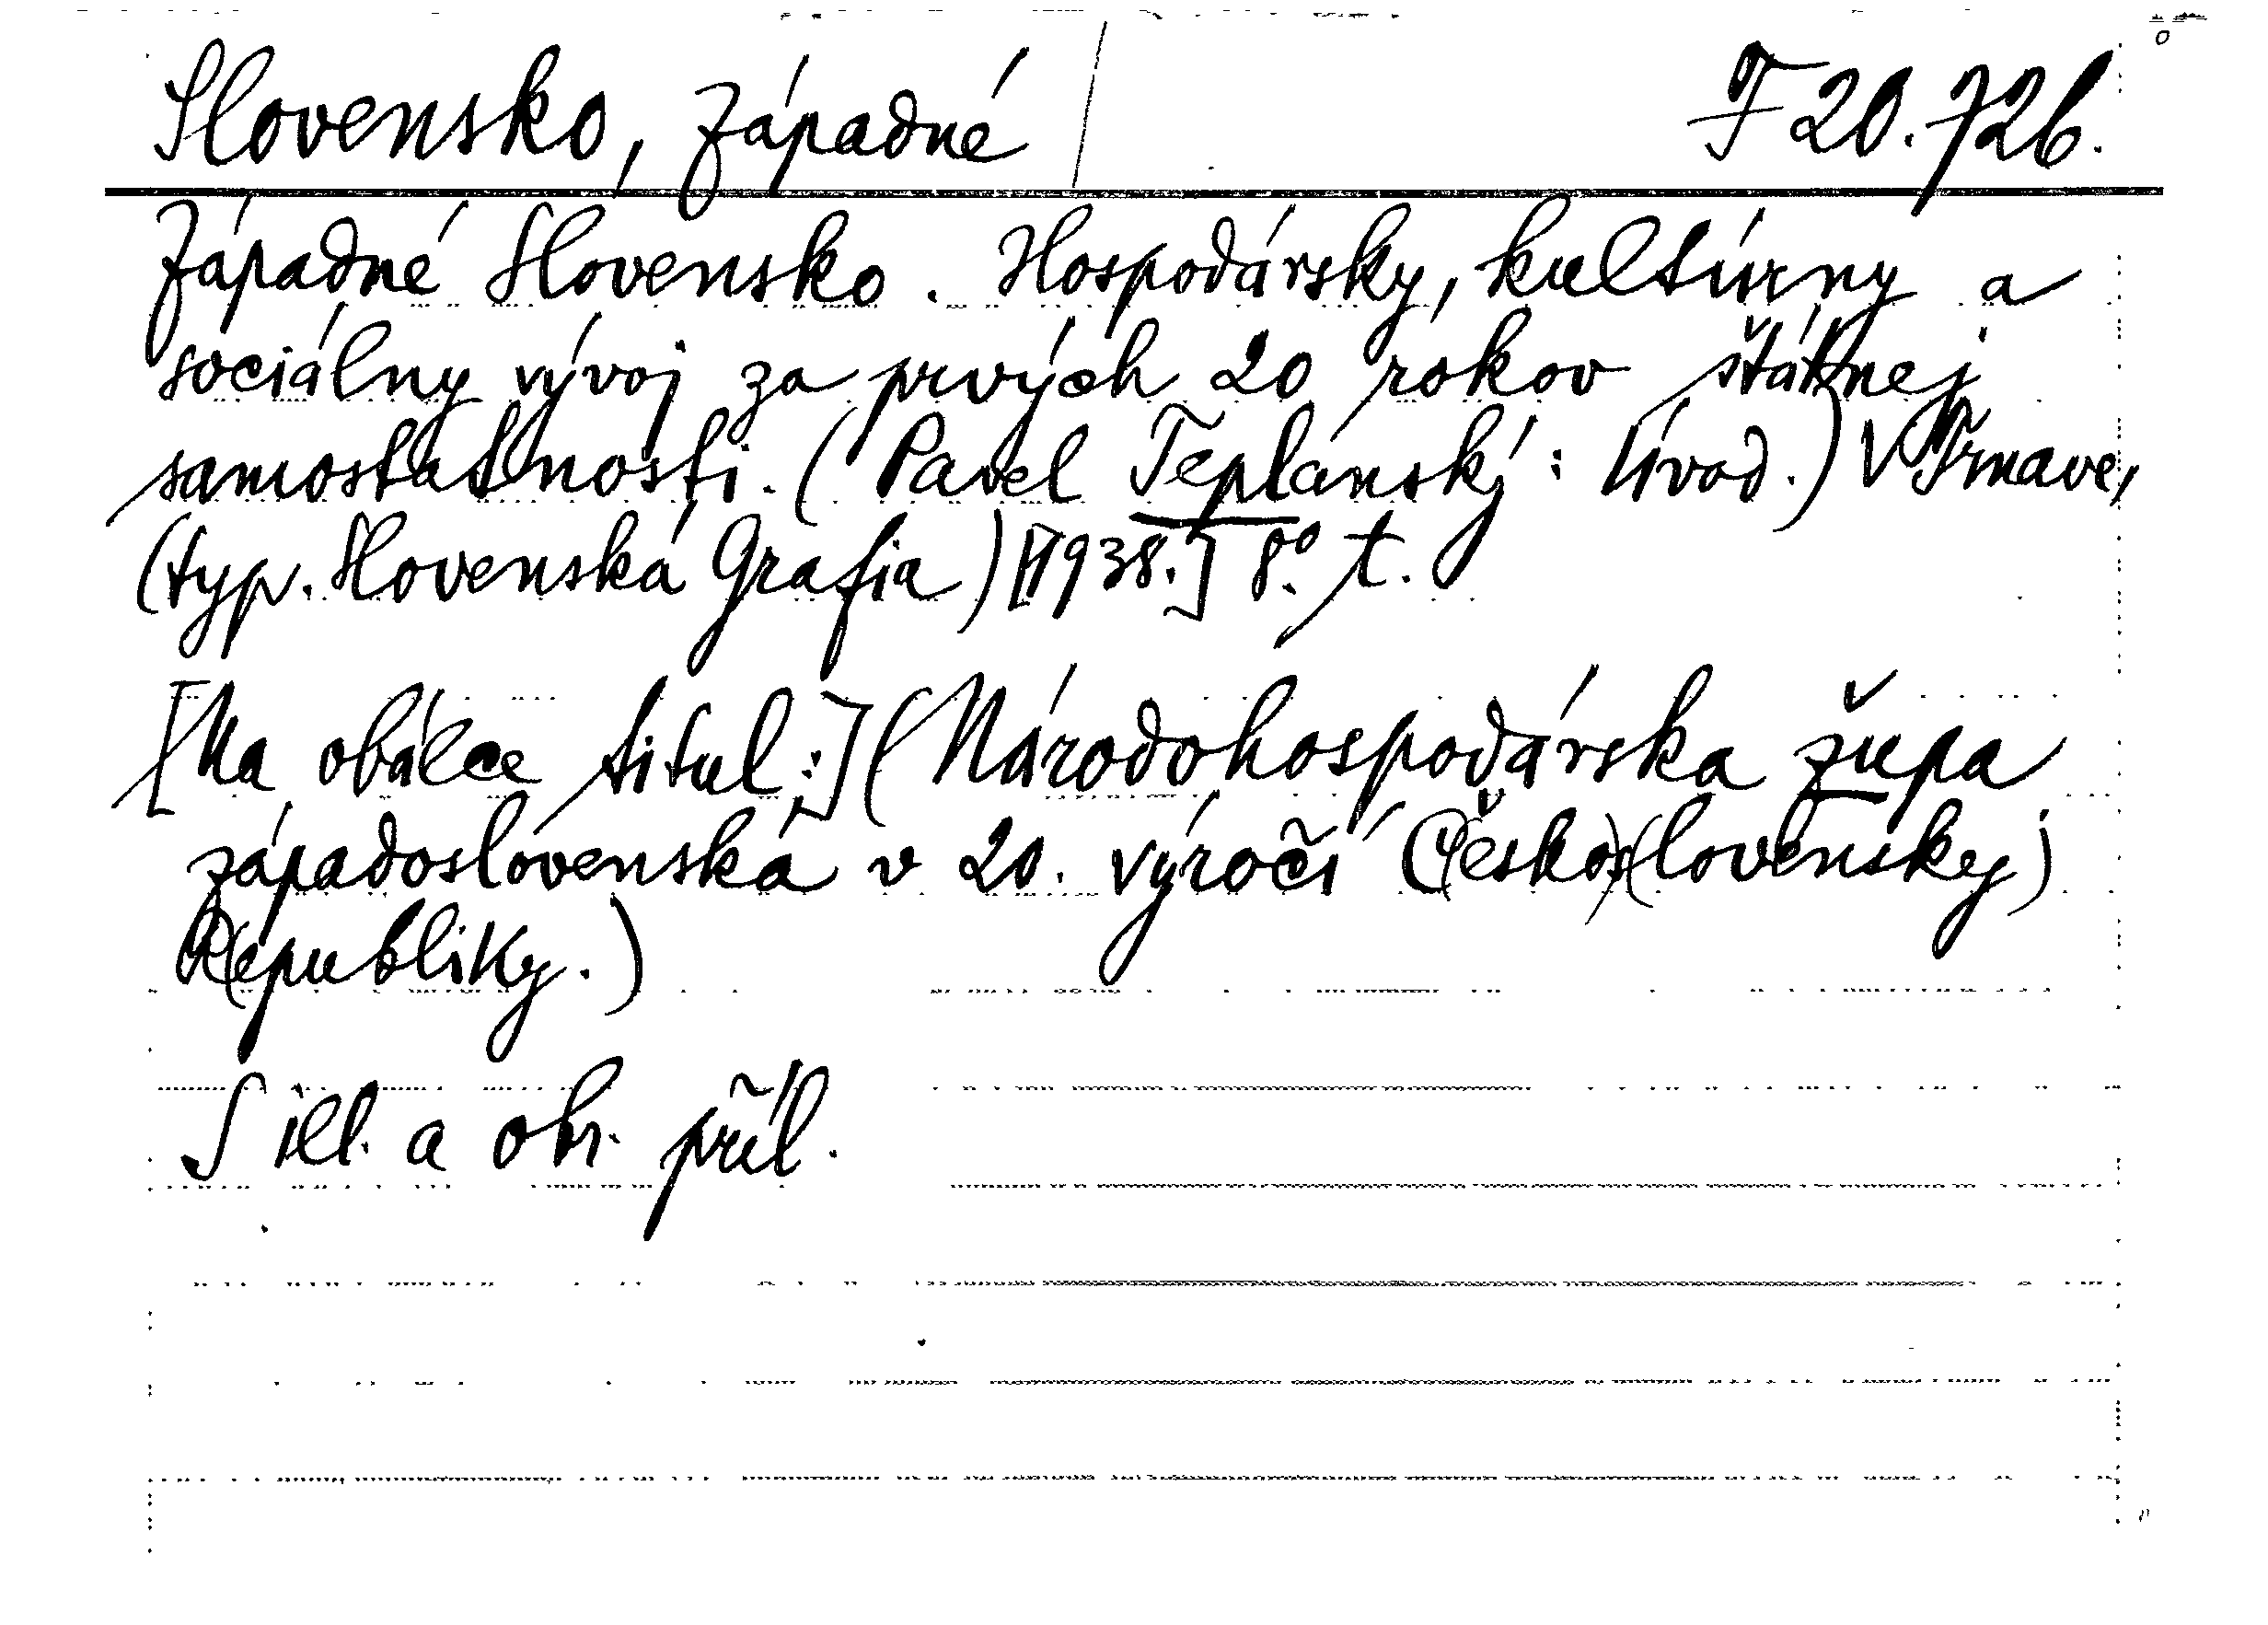 Slovensko, západné F 20.726.
Západné Slovensko. Hospodársky, kultúrny a
sociálny vývoj za prvých 20 rokov štátnej
samostatnosti. (Pavel Teplánský: Úvod.) V Trnave,
(typ. Slovenská Grafia) [1938.] 8°. t.
[Na obálce titul:] (Národohospodárska župa
západoslovenská v 20. výročí Č(esko)s(lovenskej)
R(epubliky.)
S ill. a obr. příl.